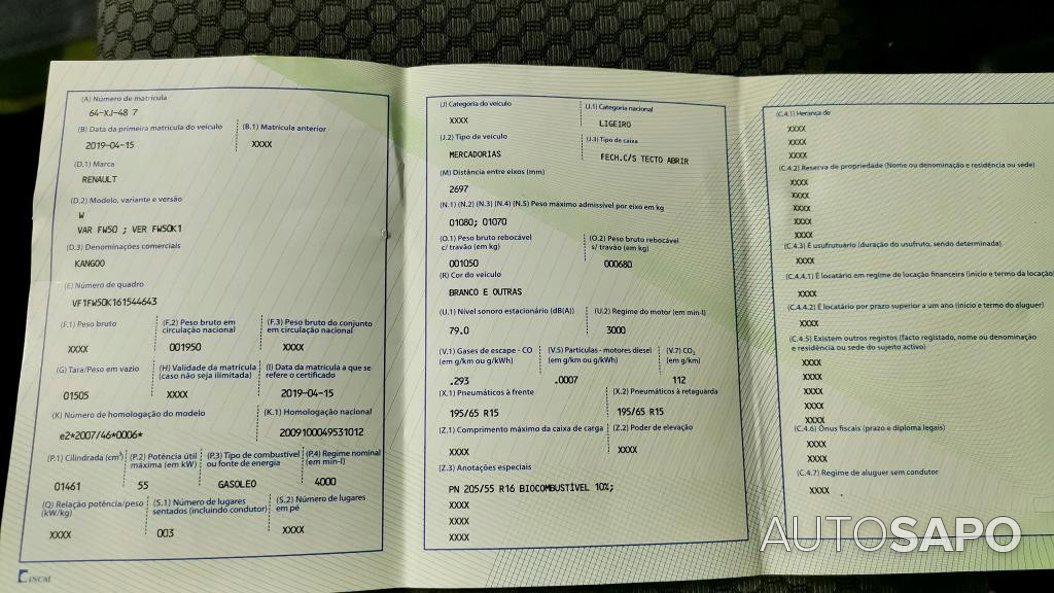 (A) Número de matrícula
64-XJ-48 7
(B) Data da primeira matrícula do veículo
(B.1) Matrícula anterior
2019-04-15
XXXX
(D.1) Marca
RENAULT
(D.2) Modelo, variante e versão
W
VAR FW50 ; VER FW50K1
(D.3) Denominações comerciais
KANGOO
(E) Número de quadro
VF1FW50K161544643
(F.1) Peso bruto
(F.2) Peso bruto em
circulação nacional
(F.3) Peso bruto do conjunto
em circulação nacional
XXXX
001950
XXXX
(G) Tara/Peso em vazio
(H) Validade da matrícula
(caso não seja ilimitada)
(I) Data da matrícula a que se
refere o certificado
01505
XXXX
2019-04-15
(K) Número de homologação do modelo
(K.1) Homologação nacional
e2*2007/46*0006*
2009100049531012
(P.1) Cilindrada (cm³)
(P.2) Potência útil
máxima (em kW)
(P.3) Tipo de combustível
ou fonte de energia
(P.4) Regime nominal
(em min-l)
01461
55
GASOLEO
4000
(Q) Relação potência/peso
(kW/kg)
(S.1) Número de lugares
sentados (incluindo condutor)
(S.2) Número de lugares
em pé
XXXX
003
XXXX
INCM
(J) Categoria do veículo
(J.1) Categoria nacional
XXXX
LIGEIRO
(J.2) Tipo de veículo
(J.3) Tipo de caixa
MERCADORIAS
FECH.C/S TECTO ABRIR
(M) Distância entre eixos (mm)
2697
(N.1) (N.2) (N.3) (N.4) (N.5) Peso máximo admissível por eixo em kg
01080; 01070
(O.1) Peso bruto rebocável
c/ travão (em kg)
(O.2) Peso bruto rebocável
s/ travão (em kg)
001050
000680
(R) Cor do veículo
BRANCO E OUTRAS
(U.1) Nível sonoro estacionário (dB(A))
(U.2) Regime do motor (em min-l)
79.0
3000
(V.1) Gases de escape - CO
(em g/km ou g/kWh)
(V.5) Partículas - motores diesel
(em g/km ou g/kWh)
(V.7) CO₂
(em g/km)
.293
.0007
112
(X.1) Pneumáticos à frente
(X.2) Pneumáticos à retaguarda
195/65 R15
195/65 R15
(Z.1) Comprimento máximo da caixa de carga
(Z.2) Poder de elevação
XXXX
XXXX
(Z.3) Anotações especiais
PN 205/55 R16 BIOCOMBUSTÍVEL 10%;
XXXX
XXXX
XXXX
(C.4.1) Herança de
XXXX
XXXX
XXXX
(C.4.2) Reserva de propriedade (Nome ou denominação e residência ou sede)
XXXX
XXXX
XXXX
XXXX
XXXX
(C.4.3) É usufrutuário (duração do usufruto, sendo determinada)
XXXX
(C.4.4.1) É locatário em regime de locação financeira (início e termo da locação)
XXXX
(C.4.4.2) É locatário por prazo superior a um ano (início e termo do aluguer)
XXXX
(C.4.5) Existem outros registos (facto registado, nome ou denominação
e residência ou sede do sujeito activo)
XXXX
XXXX
XXXX
XXXX
XXXX
(C.4.6) Ónus fiscais (prazo e diploma legais)
XXXX
XXXX
(C.4.7) Regime de aluguer sem condutor
XXXX .
AUTOSAPO